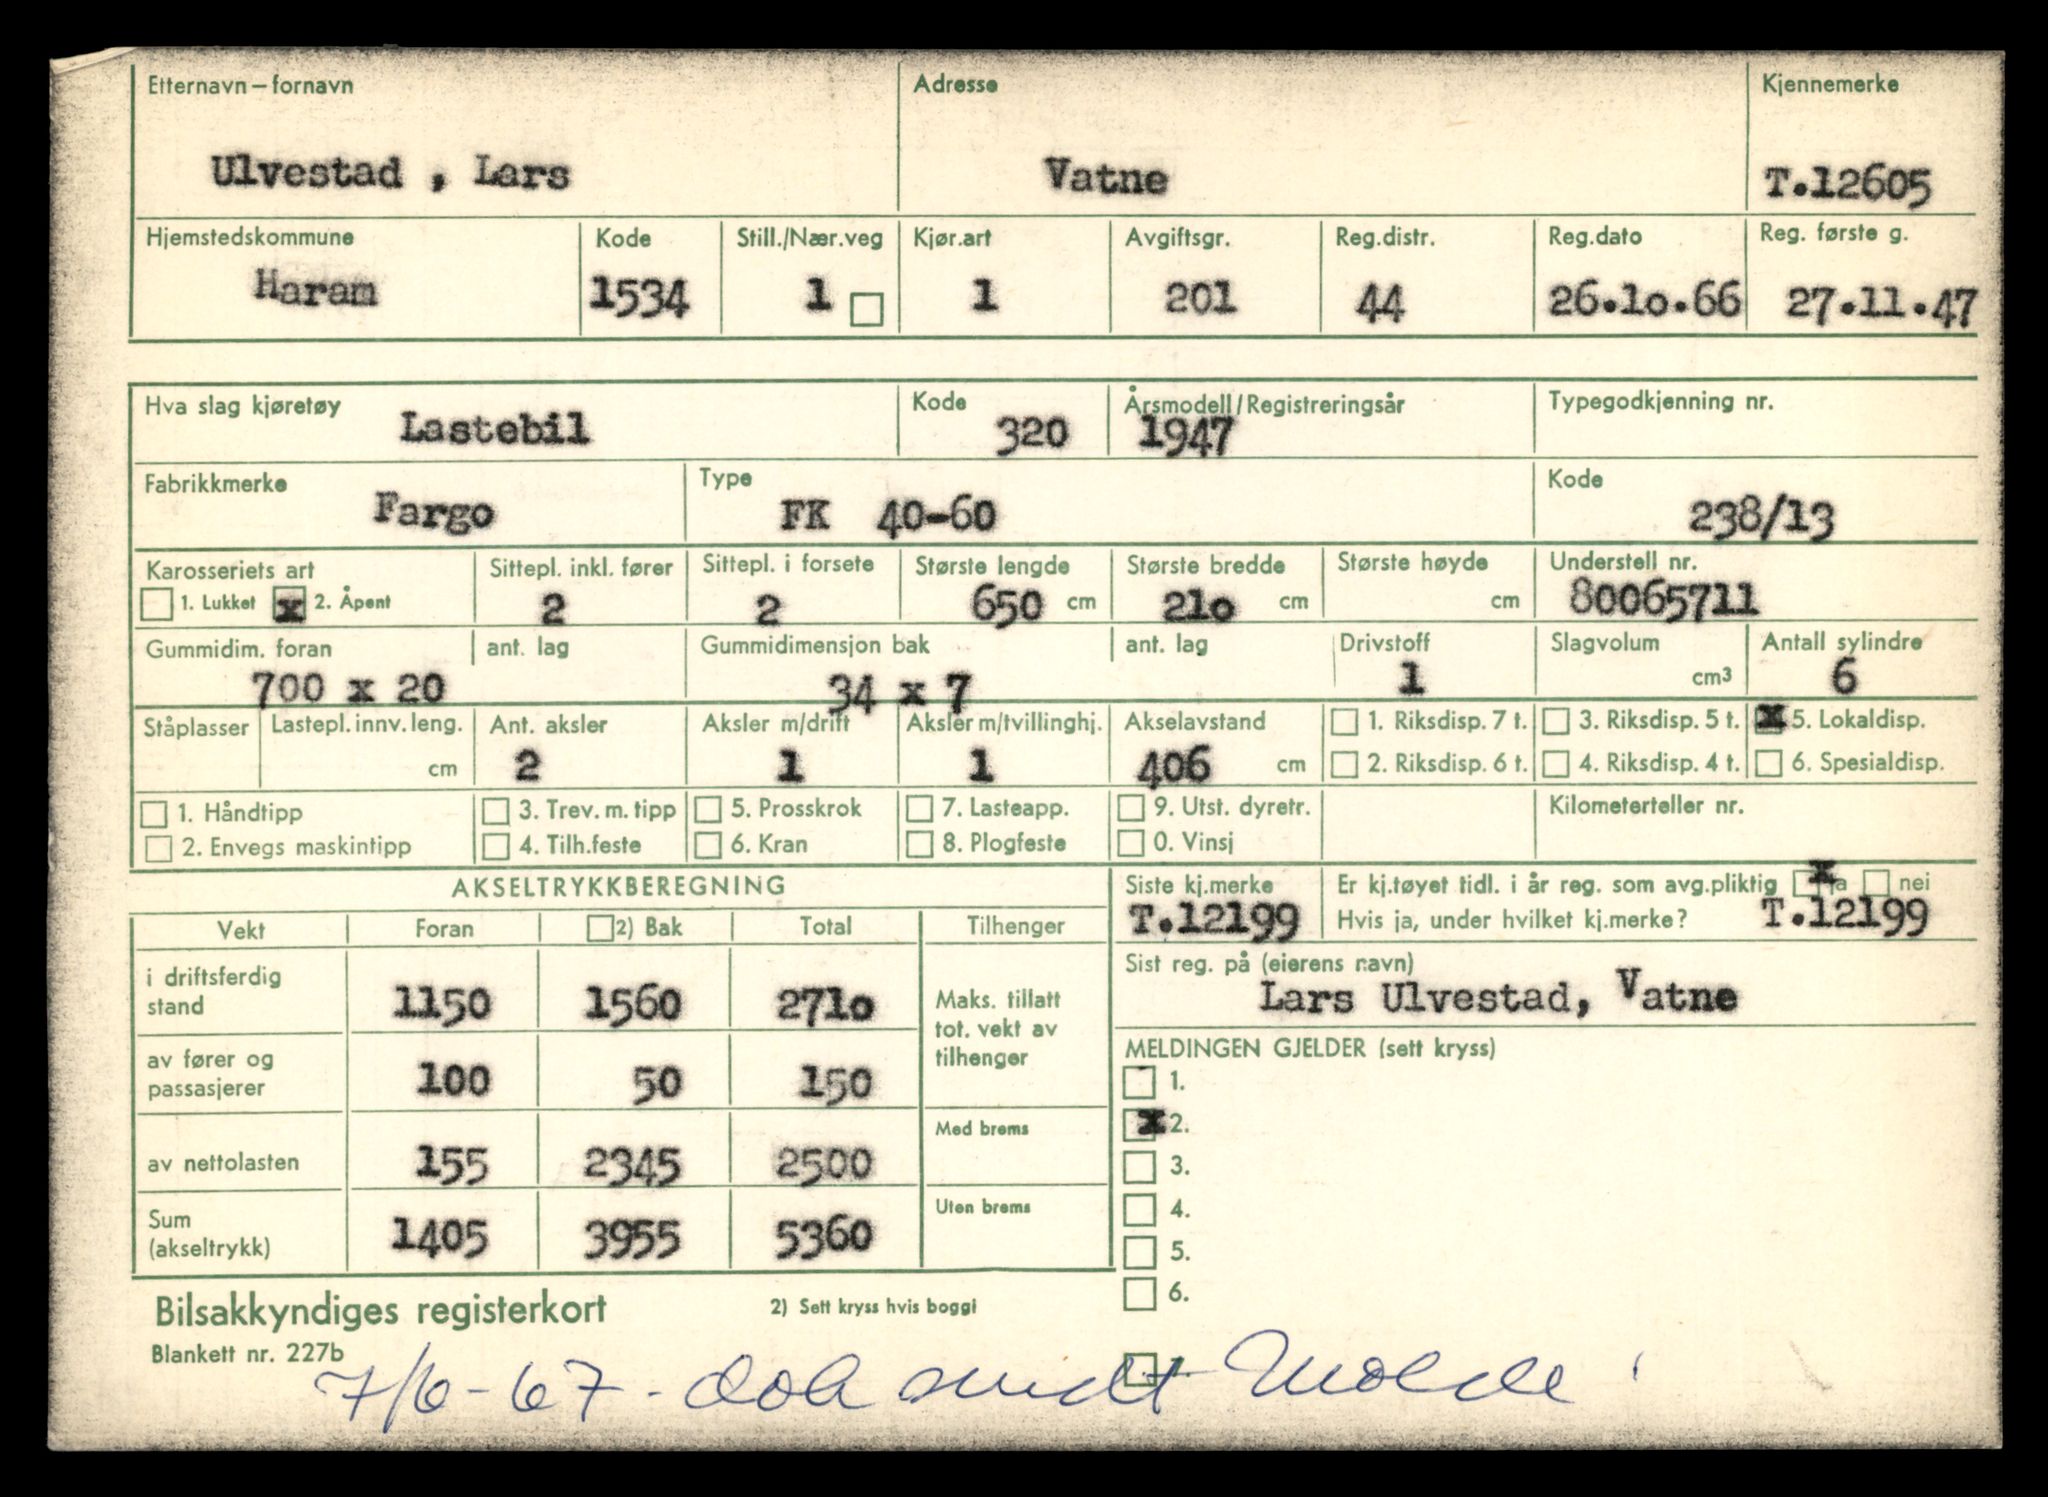 Etternavn – fornavn Adresse Kjennemerke
Ulvestad , Lars Vatne T.12605
Hjemstedskommune Kode Still./Nær.veg Kjør.art Avgiftsgr. Reg.distr. Reg.dato Reg. første g.
Haram 1534 1 1 201 44 26.1o.66 27.11.47
Hva slag kjøretøy Kode Årsmodell/Registreringsår Typegodkjenning nr.
Lastebil 320 1947
Fabrikkmerke Type Kode
Fargo FK 40-60 238/13
Karosseriets art Sittepl. inkl. fører Sittepl. i forsete Største lengde Største bredde Største høyde Understell nr.
1. Lukket x 2. Åpent 2 2 650 cm 21o cm cm 80065711
Gummidim. foran ant. lag Gummidimensjon bak ant. lag Drivstoff Slagvolum Antall sylindre
700 x 20 34 x 7 1 cm3 6
Ståplasser Lastepl. innv. leng. Ant. aksler Aksler m/drift Aksler m/tvillinghj. Akselavstand 1. Riksdisp. 7 t. 3. Riksdisp. 5 t. x 5. Lokaldisp.
cm 2 1 1 406 cm 2. Riksdisp. 6 t. 4. Riksdisp. 4 t. 6. Spesialdisp.
1. Håndtipp 3. Trev. m. tipp 5. Prosskrok 7. Lasteapp. 9. Utst. dyretr. Kilometerteller nr.
2. Envegs maskintipp 4. Tilh.feste 6. Kran 8. Plogfeste 0. Vinsj
AKSELTRYKKBEREGNING Siste kj.merke Er kj.tøyet tidl. i år reg. som avg.pliktig x ja nei
T.12199 Hvis ja, under hvilket kj.merke? T.12199
Vekt Foran 2) Bak Total Tilhenger
Sist reg. på (eierens navn)
Lars Ulvestad, Vatne
i driftsferdig stand 1150 1560 271o Maks. tillatt tot. vekt av tilhenger
MELDINGEN GJELDER (sett kryss)
av fører og passasjerer 100 50 150
1.
x 2.
Med brems
av nettolasten 155 2345 2500
3.
4.
Uten brems
Sum (akseltrykk) 1405 3955 5360
5.
6.
Bilsakkyndiges registerkort 2) Sett kryss hvis boggi
Blankett nr. 227b
7/6-67. dok sendt Molde